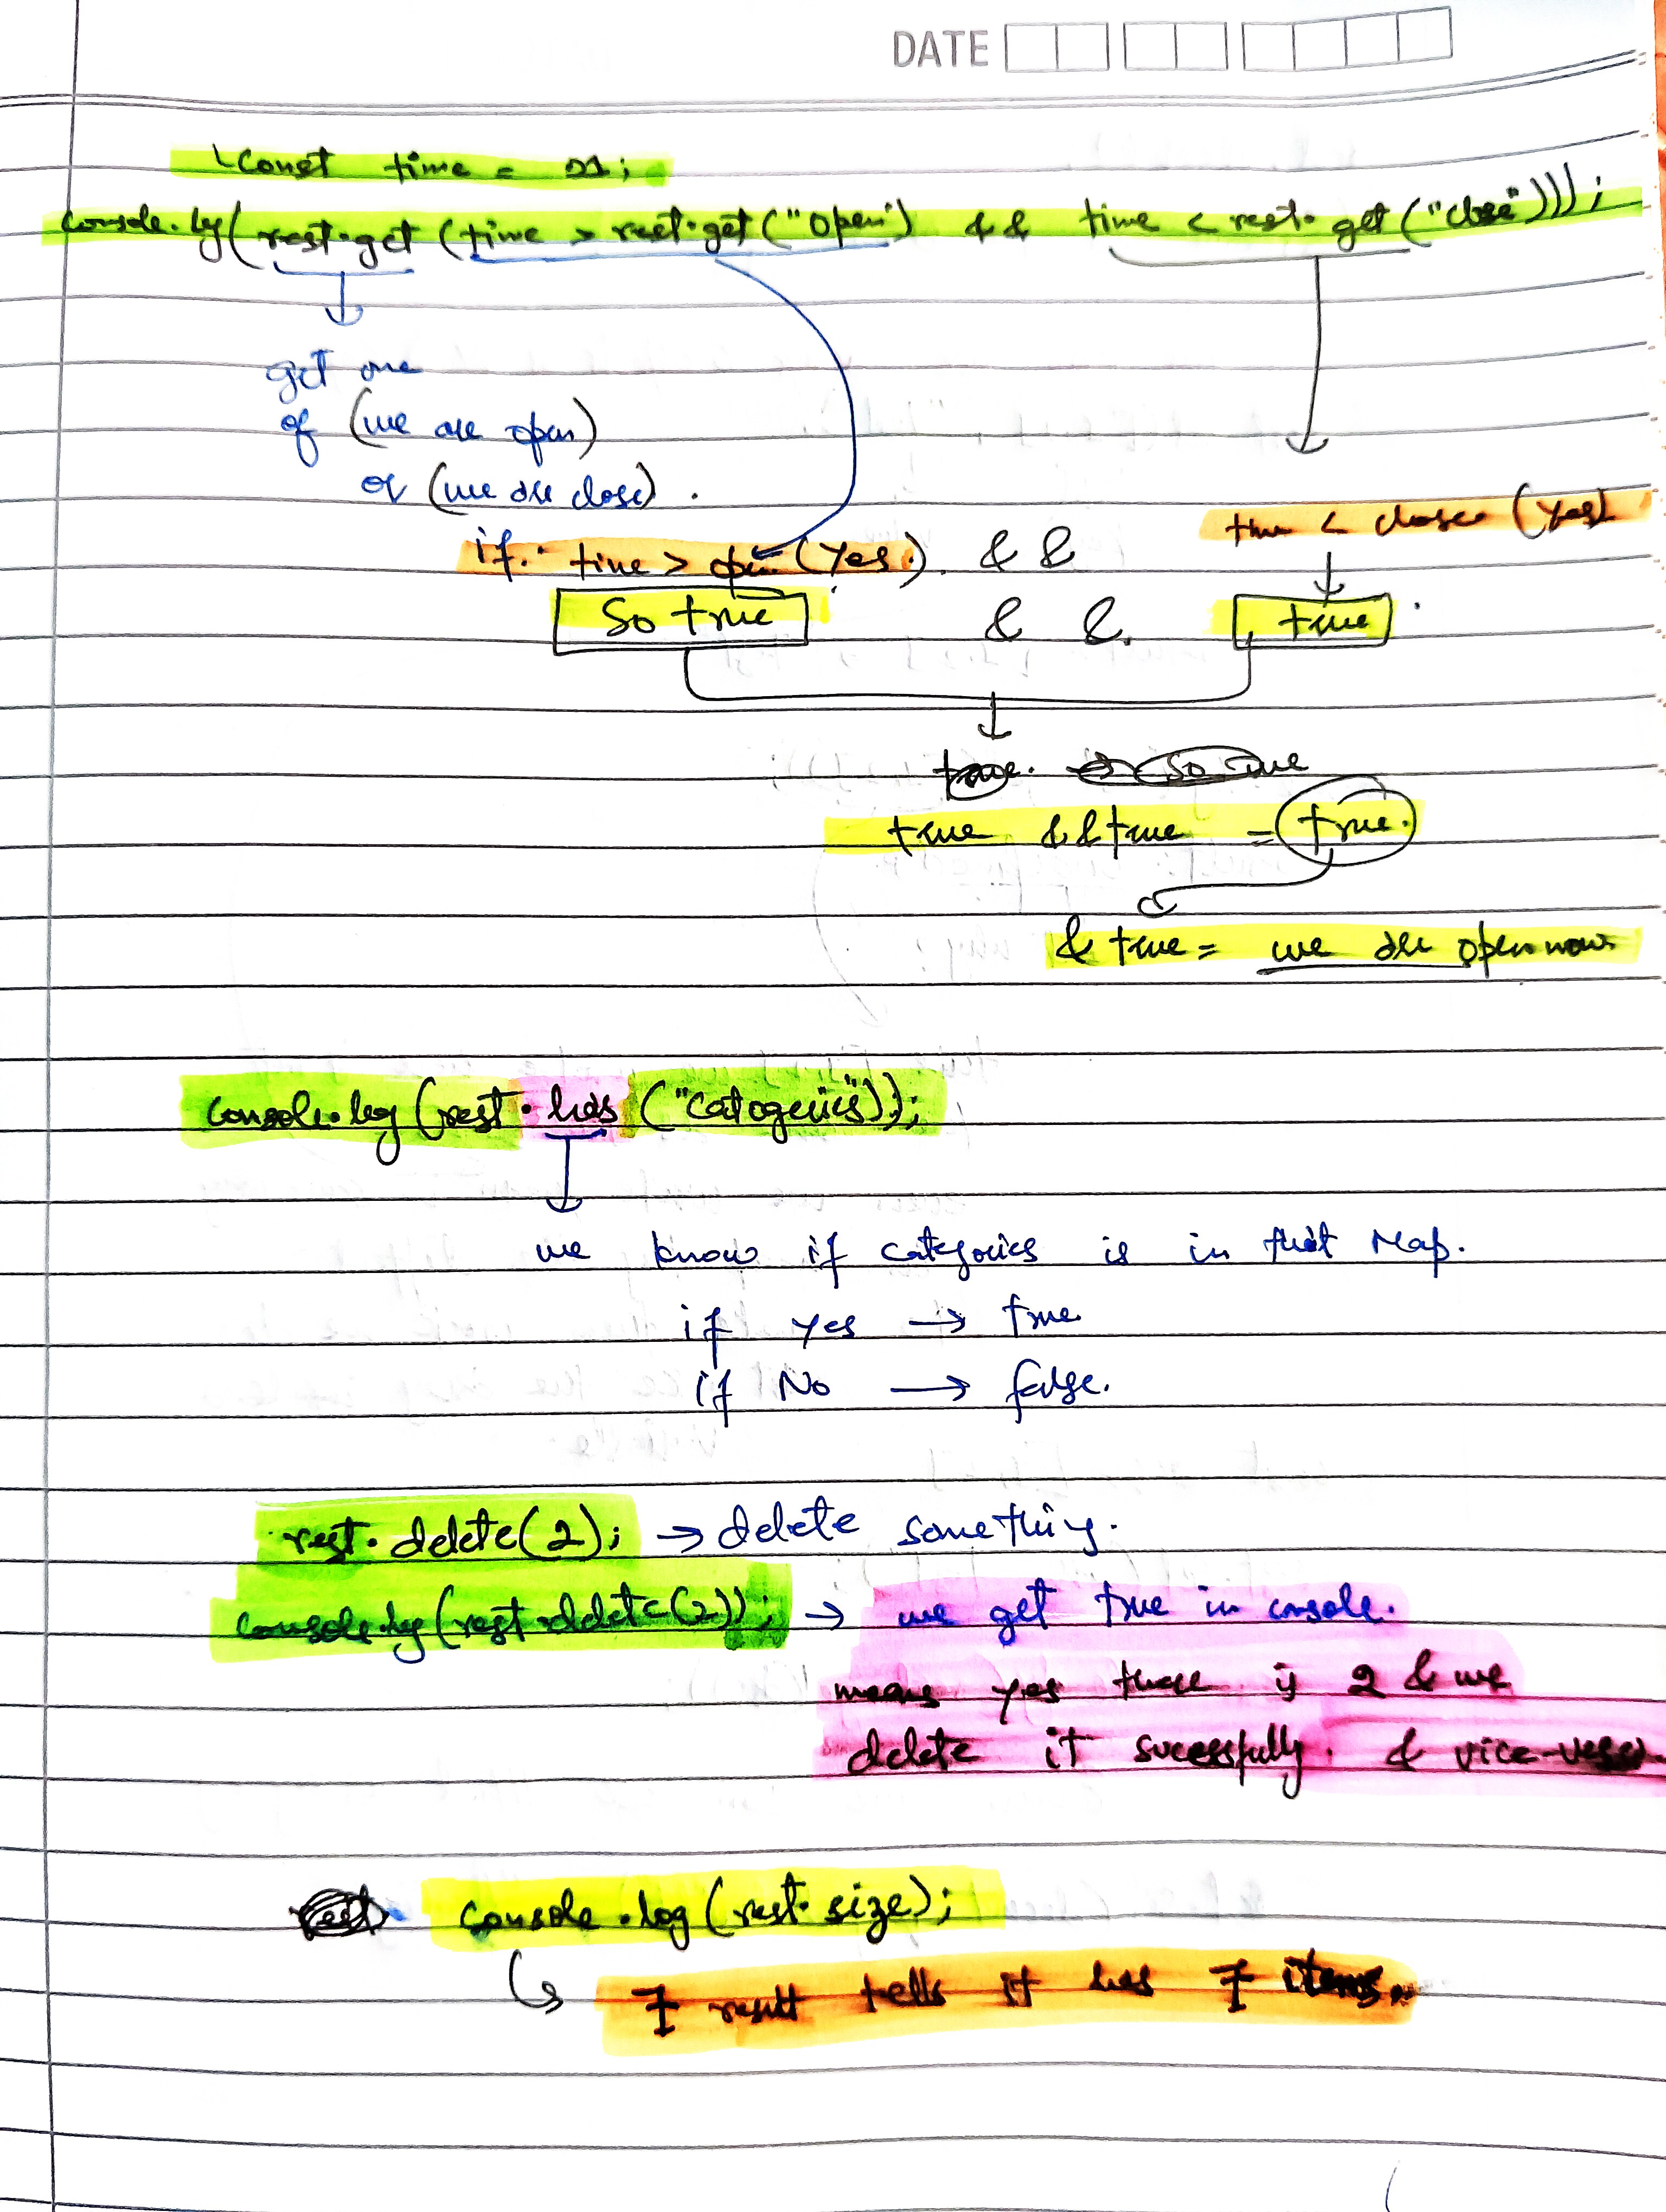 DATE
const time = 21;
console.log(rest.get(time > rest.get("open") && time < rest.get("close")));
get one
of (we are open)
or (we are close).
if. time > open (Yes.) && time < close (yes)
So true && true
true && true = true.
& true = we are open now
console.log(rest.has("catogeries"));
we know if categories is in that Map.
if yes → true
if No → false.
rest.delete(2); → delete something.
console.log(rest.delete(2)); → we get true in console.
means yes there is 2 & we
delete it sucessfully. & vice-versa
console.log(rest.size);
7 result tells it has 7 items.